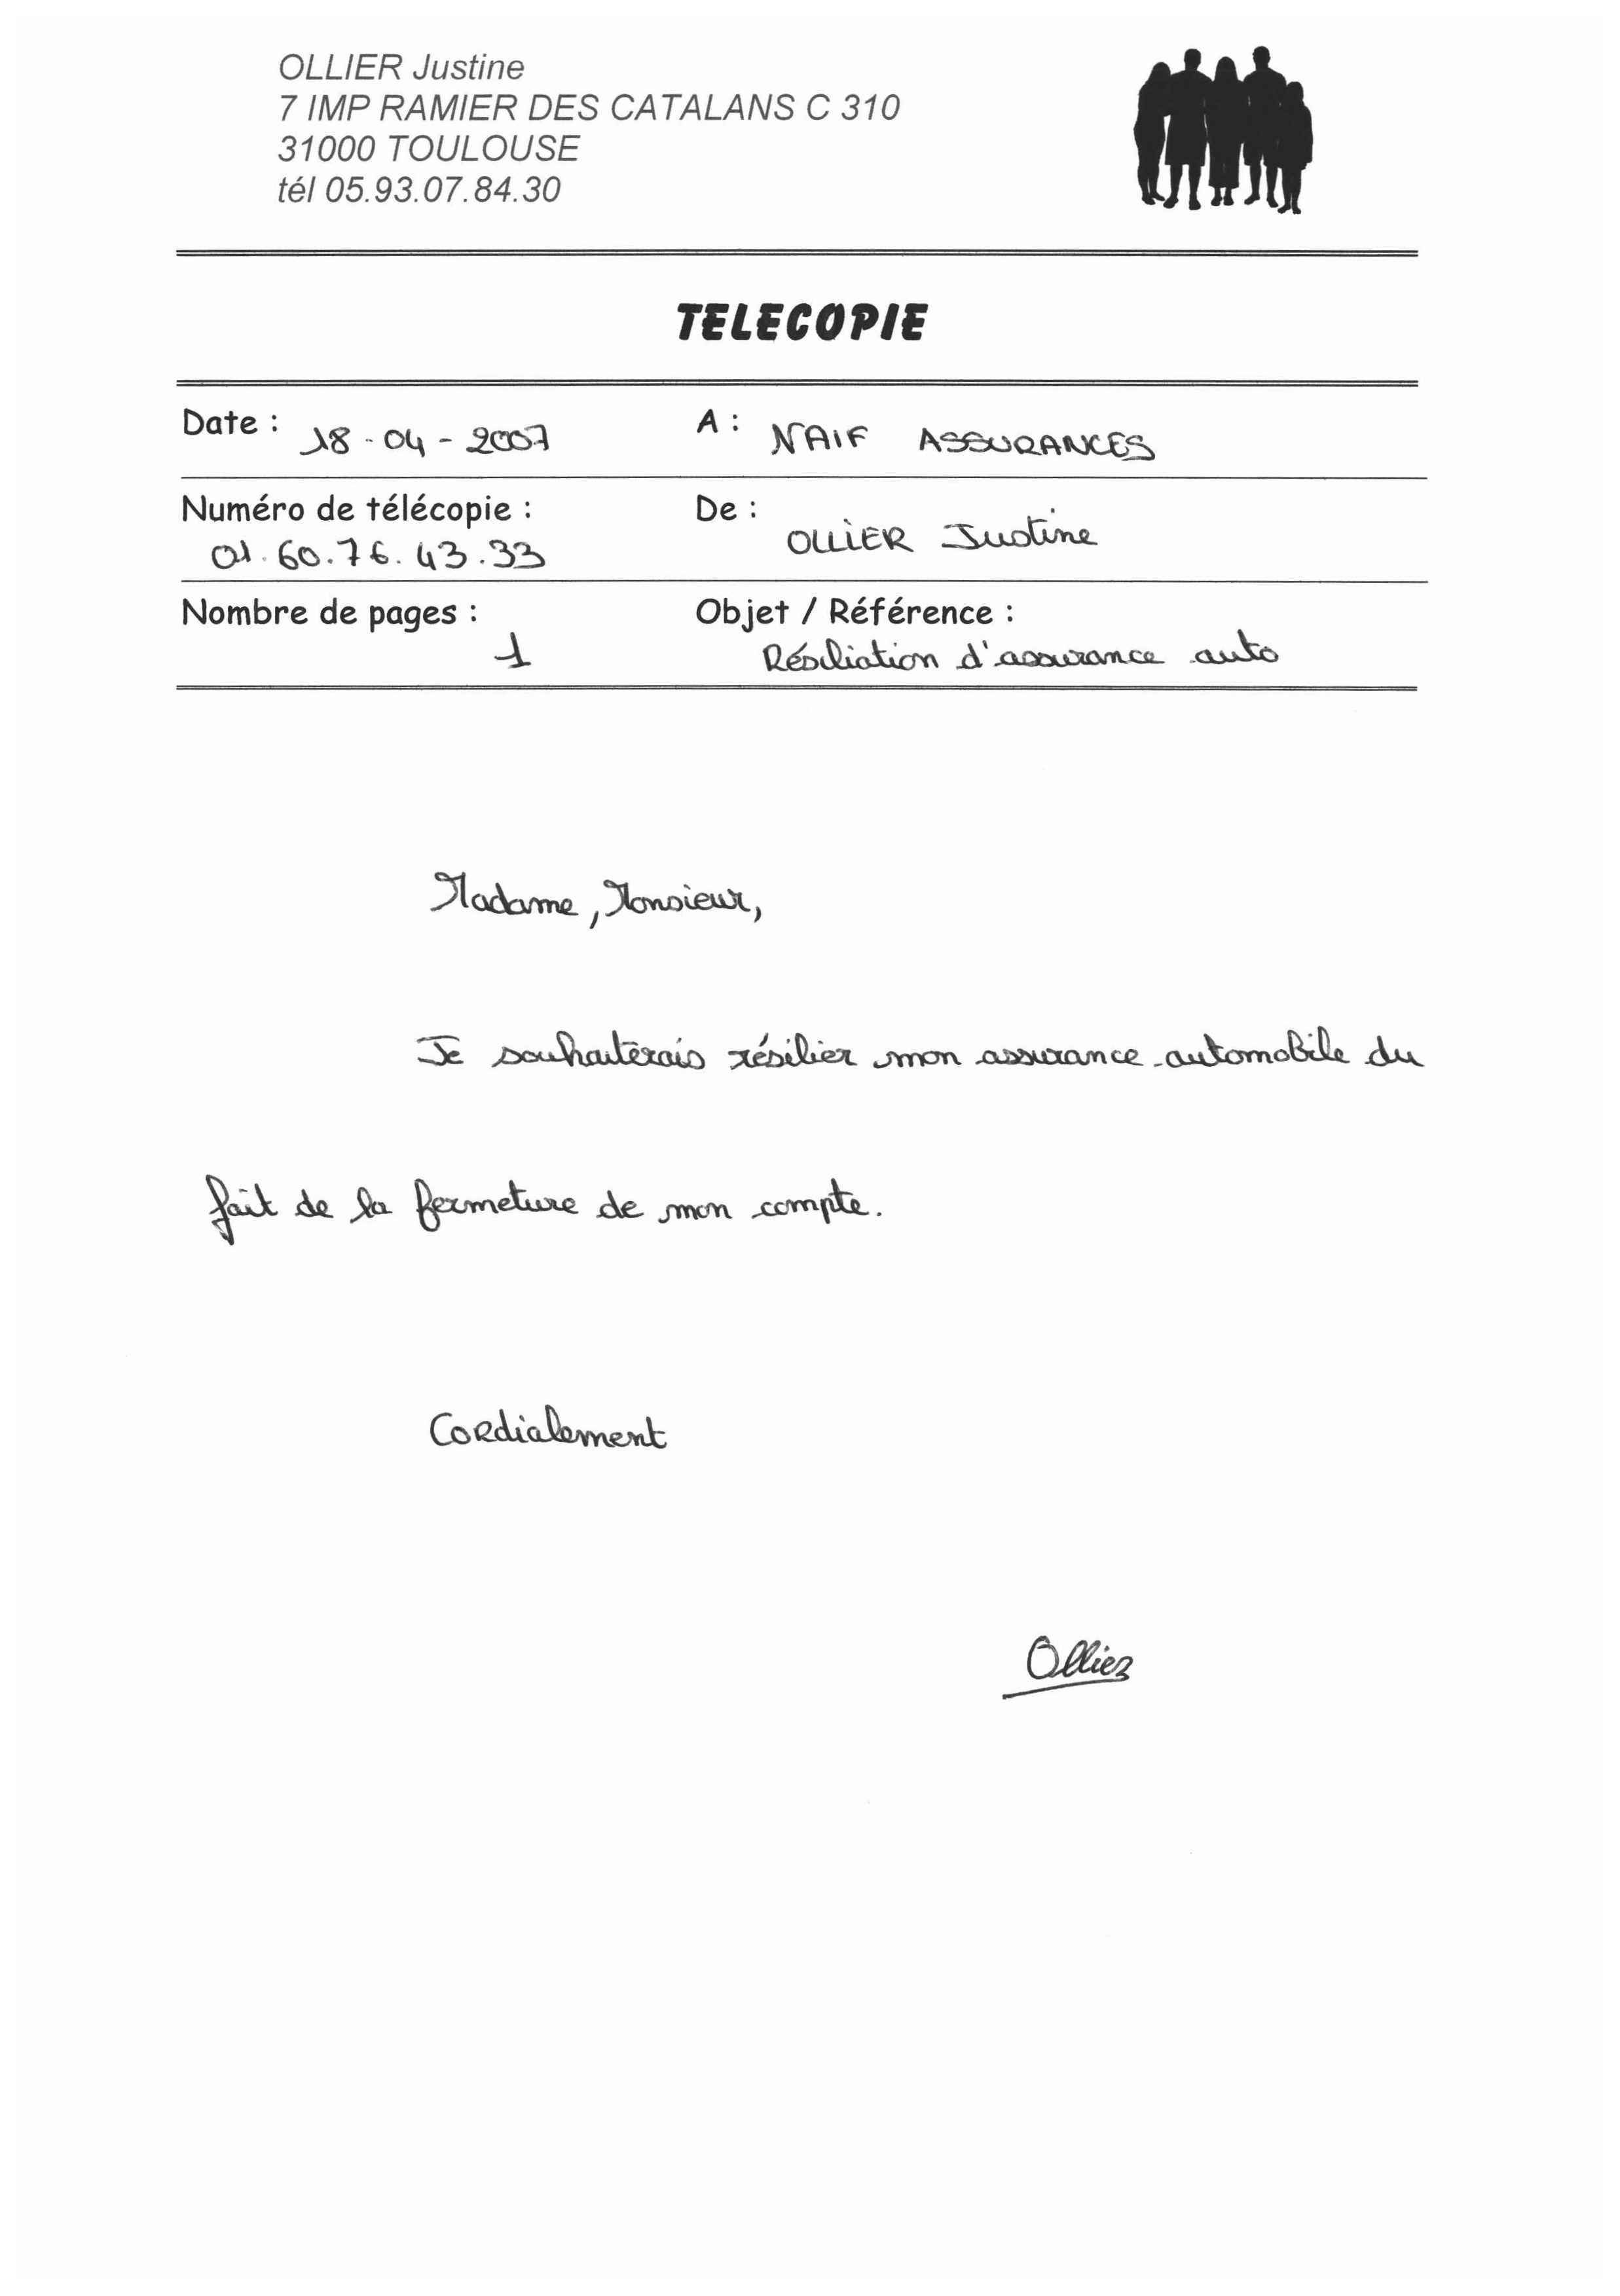 OLLIER Justine
7 IMP RAMIER DES CATALANS C 310
31000 TOULOUSE
tél 05.93.07.84.30
TELECOPIE
Date : 18-04-2007 A : NAIF ASSURANCES
Numéro de télécopie : De : OLLIER Justine
01.60.76.43.33
Nombre de pages : Objet / Référence :
1 Résiliation d'assurance auto
Madame, Monsieur,
Je souhaiterais résilier mon assurance automobile du
fait de la fermeture de mon compte.
Cordialement
Ollier